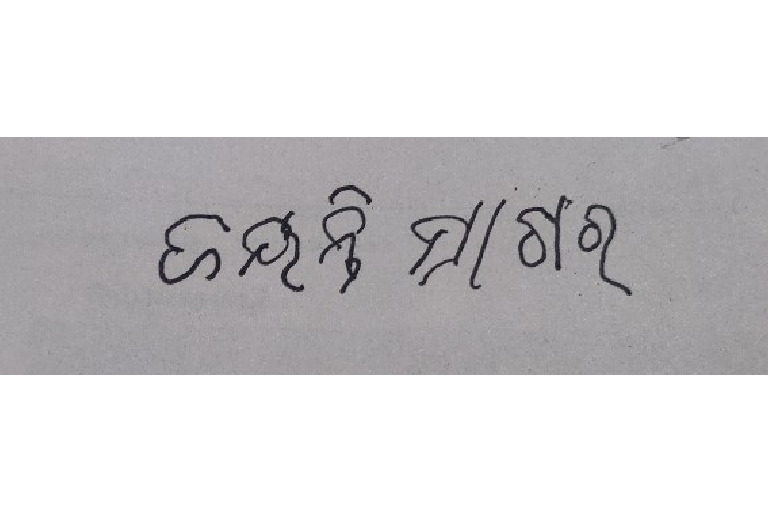 ଜୟନ୍ତି ସାଗର